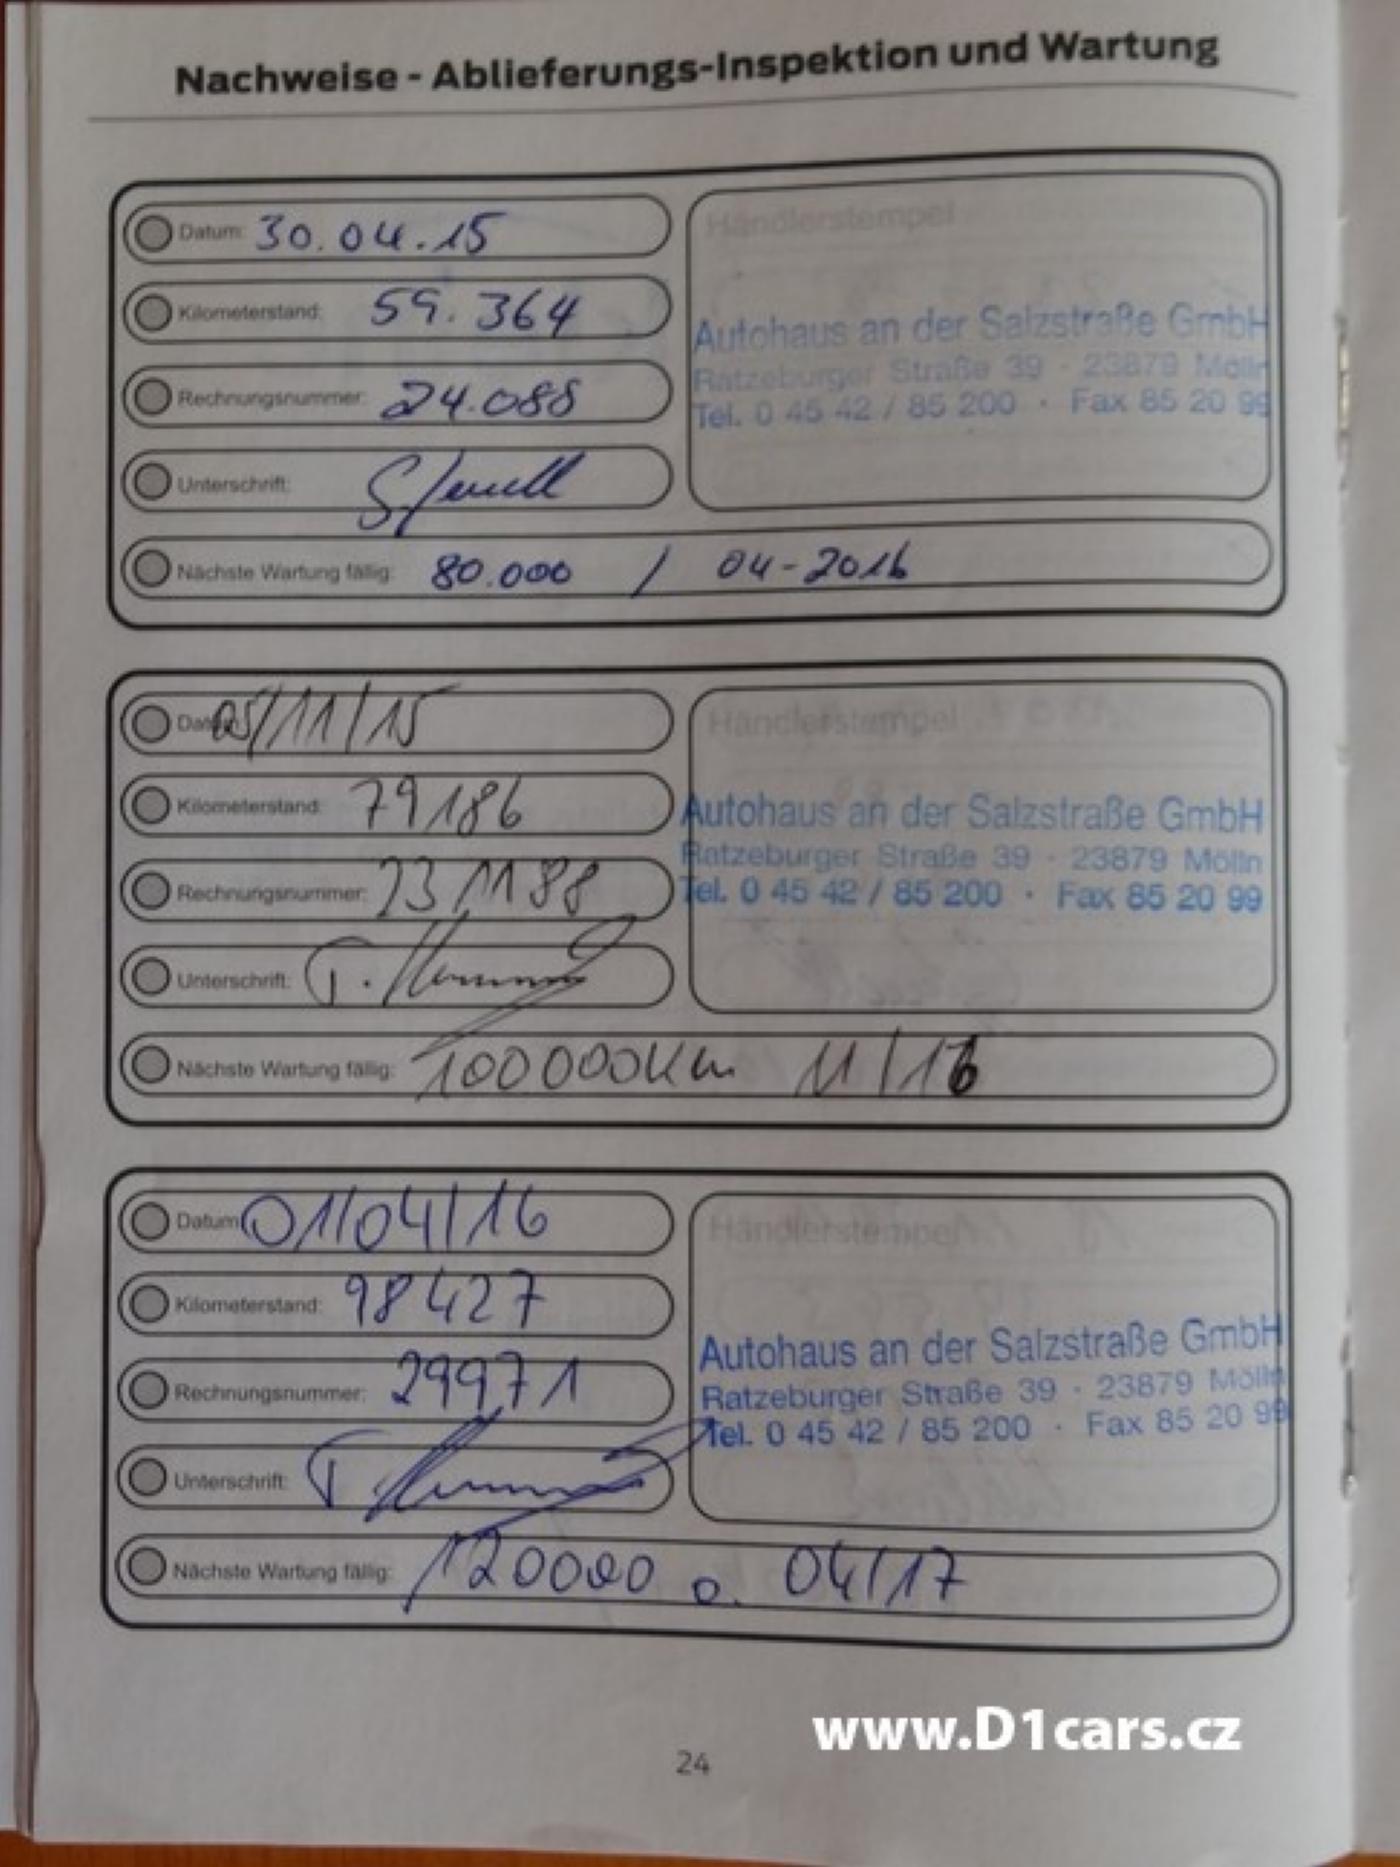 Nachweise - Ablieferungs-Inspektion und Wartung
Datum: 30.04.15
Kilometerstand: 59.364
Rechnungsnummer: 24.088
Unterschrift:
Nächste Wartung fällig: 80.000 / 04-2016
Händlerstempel
Autohaus an der Salzstraße GmbH
Ratzeburger Straße 39 · 23879 Mölln
Tel. 0 45 42 / 85 200 · Fax 85 20 99
Datum: 05/11/15
Kilometerstand: 79186
Rechnungsnummer:
Unterschrift:
Nächste Wartung fällig: 100000Km 11/16
Händlerstempel
Autohaus an der Salzstraße GmbH
Ratzeburger Straße 39 · 23879 Mölln
Tel. 0 45 42 / 85 200 · Fax 85 20 99
Datum 01/04/16
Kilometerstand: 98427
Rechnungsnummer: 29971
Unterschrift:
Nächste Wartung fällig: 120000 o. 04/17
Händlerstempel
Autohaus an der Salzstraße GmbH
Ratzeburger Straße 39 · 23879 Mölln
Tel. 0 45 42 / 85 200 · Fax 85 20 99
www.D1cars.cz
24